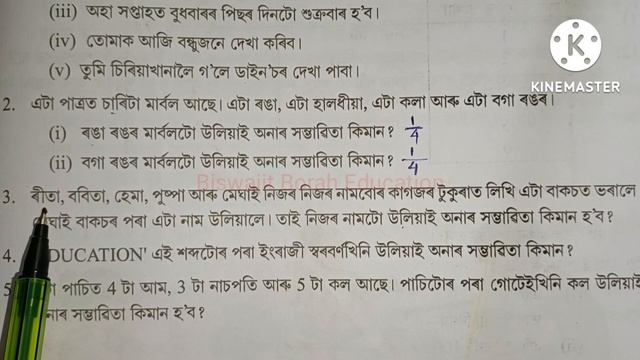 (iii) অহা সপ্তাহত বুধবাৰৰ পিছৰ দিনটো শুক্ৰবাৰ হ'ব।
(iv) তোমাক আজি বন্ধুজনে দেখা কৰিব।
(v) তুমি চিৰিয়াখানালৈ গ'লে ডাইন'চৰ দেখা পাবা।
KINEMASTER
2. এটা পাত্ৰত চাৰিটা মাৰ্বল আছে। এটা ৰঙা, এটা হালধীয়া, এটা কলা আৰু এটা বগা ৰঙৰ।
(i) ৰঙা ৰঙৰ মাৰ্বলটো উলিয়াই অনাৰ সম্ভাৱিতা কিমান? 1/4
(ii) বগা ৰঙৰ মাৰ্বলটো উলিয়াই অনাৰ সম্ভাৱিতা কিমান? 1/4
Biswajit Borah Education
3. ৰীতা, ববিতা, হেমা, পুষ্পা আৰু মেঘাই নিজৰ নিজৰ নামবোৰ কাগজৰ টুকুৰাত লিখি এটা বাকচত ভৰালে
বাকচৰ পৰা এটা নাম উলিয়ালে। তাই নিজৰ নামটো উলিয়াই অনাৰ সম্ভাৱিতা কিমান হ'ব?
4. DUCATION' এই শব্দটোৰ পৰা ইংৰাজী স্বৰবৰ্ণখিনি উলিয়াই অনাৰ সম্ভাৱিতা কিমান?
5 পাচিত 4 টা আম, 3 টা নাচপতি আৰু 5 টা কল আছে। পাচিটোৰ পৰা গোটেইখিনি কল উলিয়াই
সম্ভাৱিতা কিমান হ'ব?